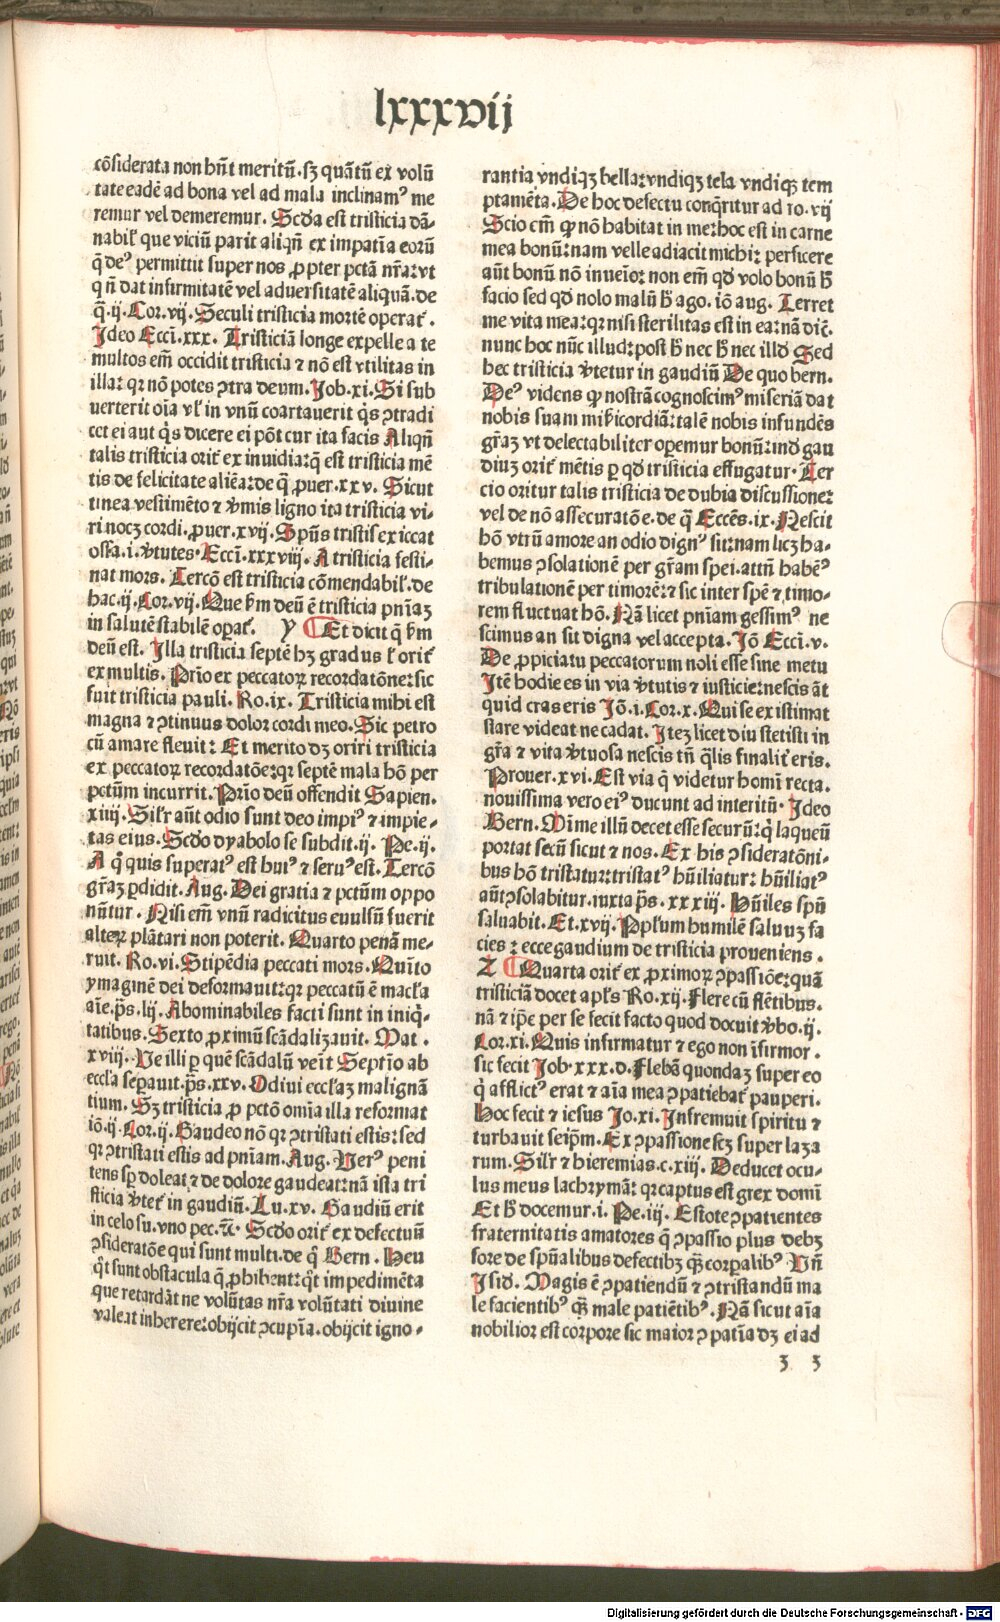 lxxxvij
cōsiderata non hn̄t meritū. sꝫ quātū ex volū
tate eadē ad bona vel ad mala inclinamꝰ me
remur vel demeremur. Scd̄a est tristicia dā-
nabil̛ que viciū parit aliqn̄ ex impatīa eorū
q̄ deꝰ permittit super nos ꝓpter pctā nr̄a: vt
q̄ n̄ dat infirmitatē vel aduersitatē aliquā. de
q̄. ij. Cor. vij. Seculi tristicia mortē operat̛.
Ideo Ecci̅. xxx. Tristiciā longe expelle a te
multos em̄ occidit tristicia ⁊ nō est vtilitas in
illa: qꝛ nō potes ↄtra deum. Job. xi. Si sub
uerterit oīa vl̛ in vnū coartauerit q̇s ↄtradi
cet ei aut q̇s dicere ei pōt cur ita facis Aliqn̄
talis tristicia orit̛ ex inuidia: q̄ est tristicia mē
tis de felicitate aliēa: de q̄ ꝓuer. xxv. Sicut
tinea vestimēto ⁊ v̓mis ligno ita tristicia vi-
ri nocꝫ cordi. ꝓuer. xvij. Spūs tristis exiccat
ossa. i. v̓tutes. Ecci̅. xxxviij. A tristicia festi-
nat mors. Tercō est tristicia cōmendabil̛. de
hac. ij. Cor. vij. Que ẜm deū ē tristicia pnīaꝫ
in salutē stabilē oꝑat̛. Y Et dicit̛ q̄ ẜm
deū est. Illa tristicia septē hꝫ gradus ł orit̛
ex multis. Prīo ex peccatoꝝ recordatōne: sic
fuit tristicia pauli. Ro. ix. Tristicia mihi est
magna ⁊ ↄtinuus dolor cordi meo. Sic petro
cū amare fleuit: Et merito dꝫ oriri tristicia
ex peccatoꝝ recordatōe: qꝛ septē mala hō per
pctm̄ incurrit. Prīo deū offendit Sapien.
xiiij. Sil̛r aūt odio sunt deo impiꝰ ⁊ impie-
tas eius. Scd̄o dyabolo se subdit. ij. Pe. ij.
A q̇ quis superatꝰ est huiꝰ ⁊ seruꝰ est. Tercō
gr̄aꝫ ꝑdidit. Aug. Dei gratia ⁊ pctm̄ oppo
nūtur. Nisi em̄ vnū radicitus euulsū fuerit
alteꝝ plātari non poterit. Quarto penā me-
ruit. Ro. vi. Stipēdia peccati mors. Quīto
ymaginē dei deformauit: qꝛ peccatū ē macl̛a
aīe. ps̄. lij. Abominabiles facti sunt in iniq̇-
tatibus. Sexto ꝓximū scādalizauit. Mat.
xviij. Ve illi ꝑ quē scādalū veīt Septīo ab
eccl̛a seꝑauit. ps̄. xxv. Odiui eccl̛aꝫ malignā
tium. Sꝫ tristicia ꝓ pctō omīa illa reformat
iō. ij. Cor. ij. Gaudeo nō qꝛ ↄtristati estis: sed
qꝛ ↄtristati estis ad pnīam. Aug. Verꝰ peni
tens sꝑ doleat ⁊ de dolore gaudeat: nā ista tri
sticia v̓tet̛ in gaudiū. Lu. xv. Gaudiū erit
in celo su. vno pec. ⁊c̄. Scd̄o orit̛ ex defectuū
ↄsideratōe qui sunt multi. de q̇ Bern. Heu
q̇t sunt obstacula q̄ ꝓhibent: q̇t impedimēta
que retardāt ne volūtas nr̄a volūtati diuine
valeat inherere: obijcit ↄcupīa. obijcit igno-
rantia vndiqꝫ bella: vndiqꝫ tela vndiqꝫ tem
ptamēta. De hoc defectu conq̄ritur ad ro. vij
Scio em̄ ꝙ nō habitat in me: hoc est in carne
mea bonū: nam velle adiacit michi: perficere
aūt bonū nō inueīo: non em̄ qd̓ volo bonū h̓
facio sed qd̓ nolo malū h̓ ago. iō aug. Terret
me vita mea: qꝛ nisi sterilitas est in ea: nā diē.
nunc hoc nūc illud: post h̓ nec h̓ nec illd̓ Sed
hec tristicia v̓tetur in gaudiū De quo bern.
Deꝰ videns ꝙ nostrā cognoscimꝰ miseriā dat
nobis suam mi̅icordiā: talē nobis infundēs
gr̄aꝫ vt delectabiliter oꝑemur bonū: ind̓ gau
diuꝫ orit̛ mētis ꝑ qd̓ tristicia effugatur. Ter
cio oritur talis tristicia de dubia discussione:
vel de nō assecuratōe. de q̄ Eccēs. ix. Nescit
hō vtrū amore an odio dignꝰ sit: nam licꝫ ha-
bemus ↄsolationē per gr̄am spei. attn̄ habēꝰ
tribulationē per timorē: ⁊ sic inter spē ⁊ timo-
rem fluctuat hō. Nā licet pnīam gessimꝰ ne
scimus an sit digna vel accepta. Iō Ecci̅. v.
De ꝓpiciatu peccatorum noli esse sine metu
Itē hodie es in via v̓tutis ⁊ iusticie: nescis āt
quid cras eris Iō. i. Cor. x. Qui se existimat
stare videat ne cadat. Itēꝫ licet diu stetisti in
gr̄a ⁊ vita v̓tuosa nescis tn̄ q̄lis finalit̛ eris.
Prouer. xvi. Est via q̄ videtur homī recta.
nouissima vero eiꝰ ducunt ad interitū. Ideo
Bern. Mīme illū decet esse securū: q̇ laqueū
portat secū sicut ⁊ nos. Ex his ↄsideratōni-
bus hō tristatur: tristatꝰ hūiliatur: hūiliatꝰ
aūt ↄsolabitur. iuxta ps̄. xxxiij. Hūiles spū
saluabit. Et. xvij. Ppl̛um humilē saluuꝫ fa
cies: ecce gaudium de tristicia proueniens.
Z Quarta orit̛ ex ꝓximoꝝ ↄpassiōe: quā
tristiciā docet apl̛s Ro. xij. Flere cū flētibus.
nā ⁊ ip̄e per se fecit facto quod docuit v̓bo. ij.
Cor. xi. Quis infirmatur ⁊ ego non īfirmor.
sic fecit Job. xxx. d. Flebā quondaꝫ super eo
q̇ afflictꝰ erat ⁊ aīa mea ↄpatiebat̛ pauperi.
Hoc fecit ⁊ iesus Jo. xi. Infremuit spiritu ⁊
turbauit seip̄m. Ex ↄpassione scꝫ super laza
rum. Sil̛r ⁊ hieremias. c. xiij. Deducet ocu-
lus meus lachrymā: qꝛ captus est grex domī
Et h̓ docemur. i. Pe. iij. Estote ↄpatientes
fraternitatis amatores q̄ ↄpassio plus debꝫ
fore de spūalibus defectibꝫ q̄ꝫ corꝑalibꝰ Vn̄
Isid̓. Magis ē ↄpatiendū ⁊ ↄtristandū ma
le facientibꝰ q̄ꝫ male patiētibꝰ. Nā sicut aīa
nobilior est corpore sic maior ↄpatīa dꝫ ei ad
ʒ ʒ
Digitalisierung gefördert durch die Deutsche Forschungsgemeinschaft - DFG